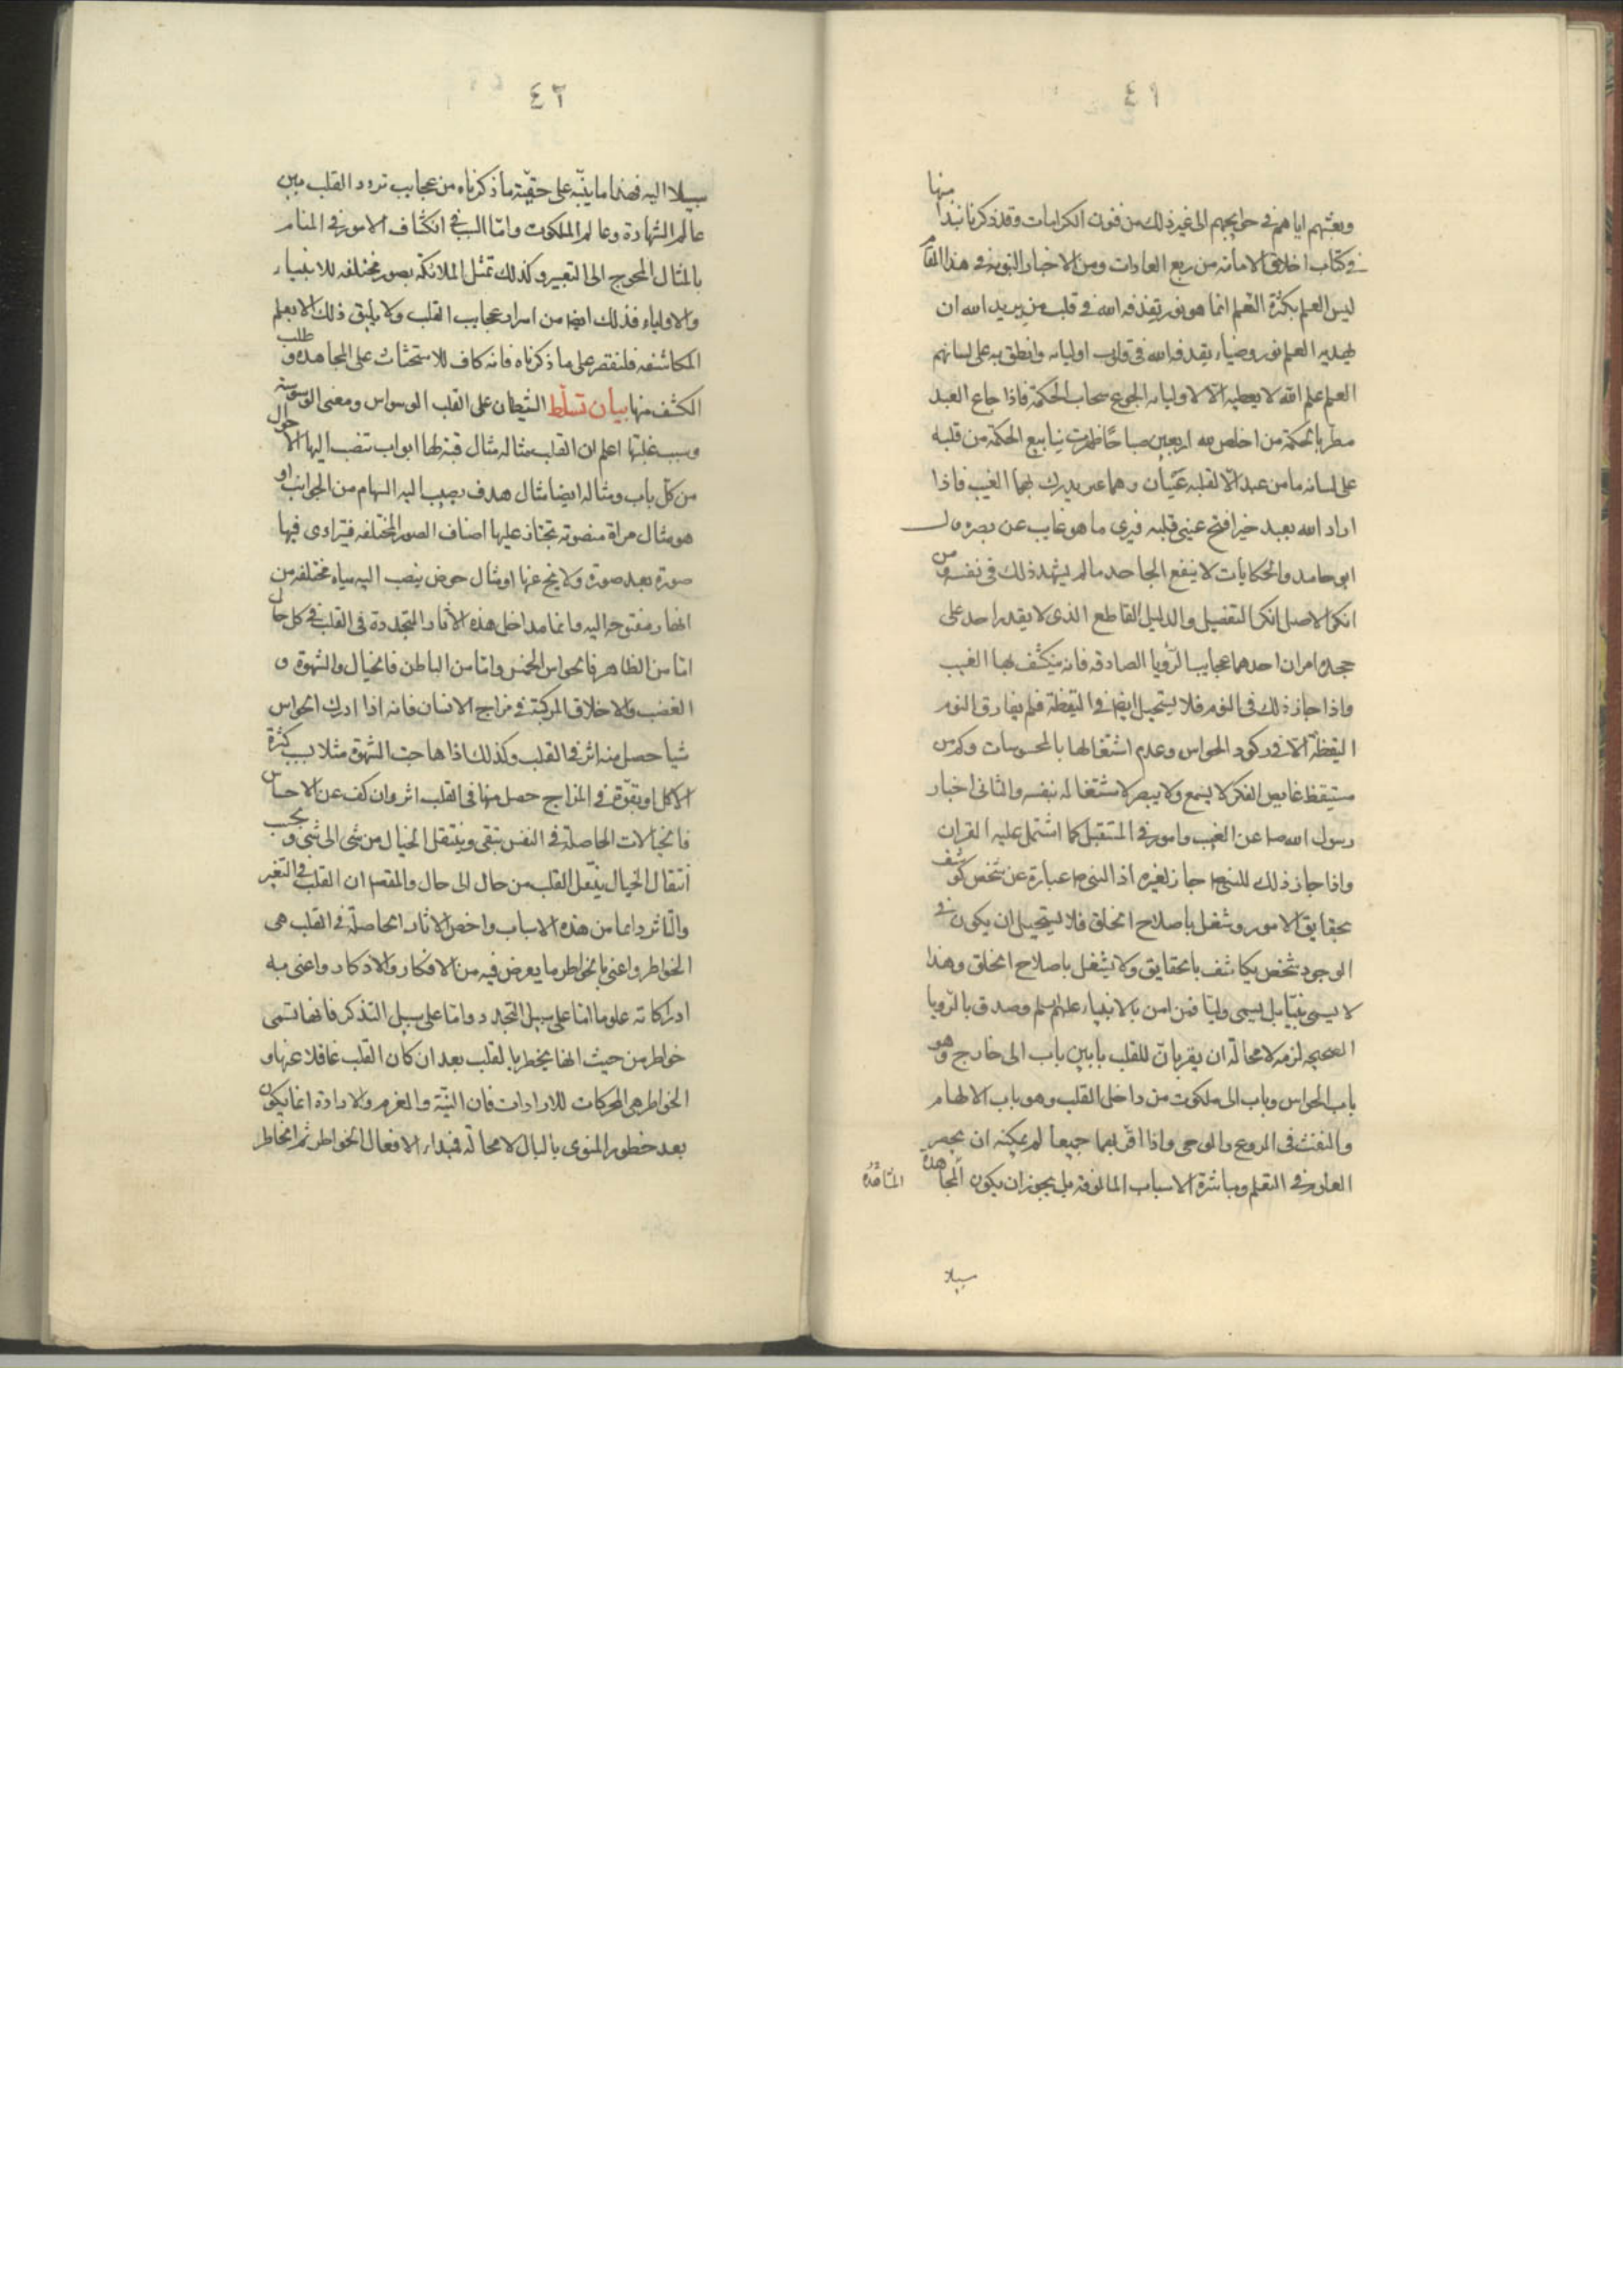 ٤١
منها
وبعثهم اياهم في حوايجهم الى غير ذلك من فنون الكرامات وقد ذكرنا نبذا
في كتاب اخلاق الامامة من ربع العادات ومن الاخبار النبوية في هذا المقام
ليس العلم بكثرة التعلم انما هو نور يقذفه الله في قلب من يريد الله ان
يهديه العلم نور وضياء يقذفه الله في قلوب اوليائه وانطق به على لسانهم
العلم علم الله لا يعطيه الا لاوليائه الجوع سحاب الحكمة فاذا جاع العبد
مطر بالحكمة من اخلص لله اربعين صباحًا ظهرت ينابيع الحكمة من قلبه
على لسانه ما من عبد الا لقلبه عينان وهما غيب يدرك بهما الغيب فاذا
اراد الله بعبد خيرا فتح عيني قلبه فيرى ما هو غايب عن بصره قال
ابو حامد والحكايات لا ينفع الجاحد ما لم يشهد ذلك في نفسه ومن
انكر الاصل انكر التفصيل والدليل القاطع الذي لا يقدر احد على
جحده امران احدهما عجايب الرؤيا الصادقه فانه ينكشف بها الغيب
واذا جاز ذلك في النوم فلا يستحيل ايضا في اليقظة فلم يفارق النوم
اليقظة الا في ركود الحواس وعدم اشتغالها بالمحسوسات وكم من
مستيقظ غايص الفكر لا يسمع ولا يبصر لاشتغاله بنفسه والثاني اخبار
رسول الله ص عن الغيب وامور في المستقبل كما اشتمل عليه القران
واذا جاز ذلك للنبي ص جاز لغيره اذ النبي ص عبارة عن شخص كوشف
بحقايق الامور وشغل باصلاح الخلق فلا يستحيل ان يكون في
الوجود شخص يكاشف بالحقايق ولا يشغل باصلاح الخلق وهذا
لا يسمى نبيًا بل يسمى وليًا فمن امن بالانبياء عليهم السلم وصدق بالرويا
الصحيحه لزمه لا محالة ان يقر بان للقلب بابين باب الى خارج وهو
باب الحواس وباب الى ملكوت من داخل القلب وهو باب الالهام
والنفث في الروع والوحي واذا اقر بهما جميعا لم يمكنه ان يحصر
العلوم في التعلم ومباشرة الاسباب المالوفة بل يجوز ان يكون المجاهدة
المشاهدة
سبيلا
٤٢
سبيلا اليه فهذا ما ينبّه على حقيّة ما ذكرناه من عجايب تردد القلب بين
عالم الشهادة وعالم الملكوت وامّا السبب في انكشاف الامور في المنام
بالمثال المحوج الى التعبير وكذلك تمثل الملائكة بصور مختلفه للانبياء
والاولياء فذلك ايضا من اسرار عجايب القلب ولا يليق ذلك الا بعلم
المكاشفه فلنقتصر على ما ذكرناه فانه كاف للاستحثاث على المجاهدة وطلب
الكشف منها بيان تسلّط الشيطان على القلب الوسواس ومعنى الوسوسة
وسبب غلبتها اعلم ان القلب مثاله مثال قبة لها ابواب تنصب اليها الاحوال
من كل باب ومثاله ايضا مثال هدف يصيب اليه السهام من الجوانب او
هو مثال مراة منصوبة تجتاز عليها اصناف الصور المختلفه فيتراءى فيها
صورة بعد صورة ولا يخ عنها او مثال حوض ينصب اليه مياه مختلفه من
انهار مفتوحه اليه وانما مداخل هذه الاثار المتجددة في القلب في كل حال
امّا من الظاهر فالحواس الخمس وامّا من الباطن فالخيال والشهوة و
الغضب والاخلاق المركبة في مزاج الانسان فانه اذا ادرك الحواس
شيا حصل منه اثر في القلب وكذلك اذا هاجت الشهوة مثلا بسبب كثرة
الاكل او بقوّة في المزاج حصل منها في القلب اثر وان كف عن الاحساس
فالخيالات الحاصلة في النفس تبقى وينتقل الخيال من شى الى شى وبحسب
انتقال الخيال ينتقل القلب من حال الى حال والمقصود ان القلب في التغير
والتاثر دايما من هذه الاسباب واخص الاثار الحاصلة في القلب هي
الخواطر واعنى بالخواطر ما يعرض فيه من الافكار والاذكار واعنى به
ادراكاته علوما امّا على سبيل التجدد وامّا على سبيل التذكر فانها تسمى
خواطر من حيث انها يخطر بالقلب بعد ان كان القلب غافلا عنها و
الخواطر هي المحركات للارادات فان النيّة والعزم والارادة انما يكون
بعد خطور المنوى بالبال لا محالة فمبداء الافعال الخواطر ثم الخاطر